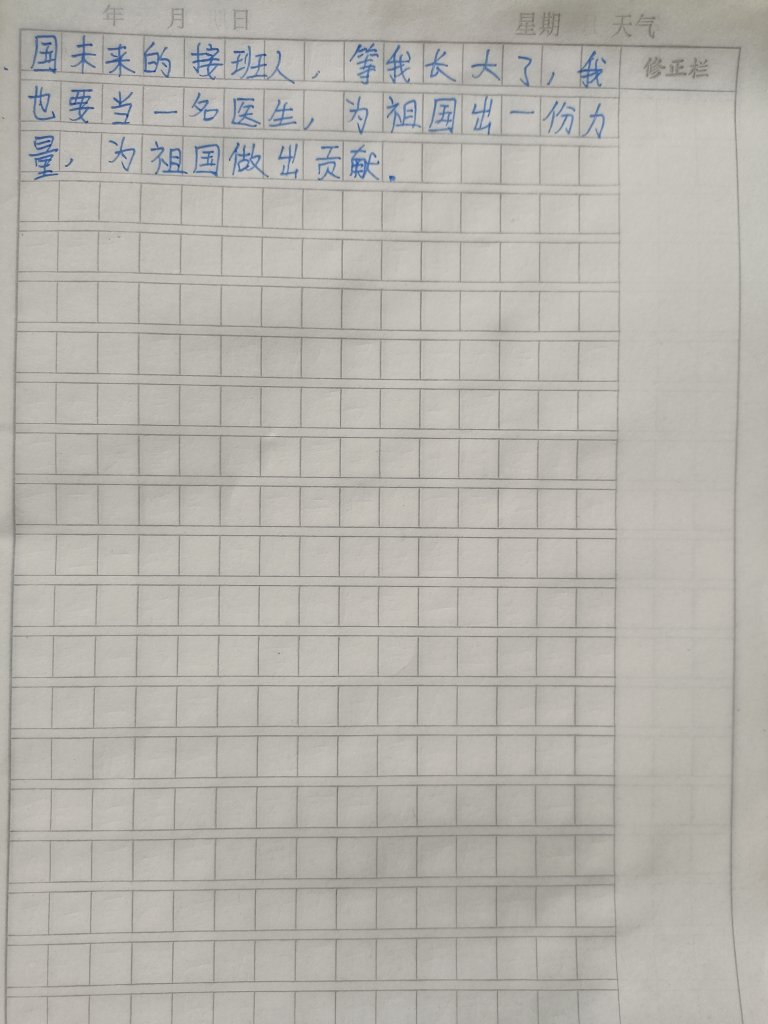 年 月 日 星期 天气
国未来的接班人，等我长大了，我 修正栏
也要当一名医生，为祖国出一份力
量，为祖国做出贡献。